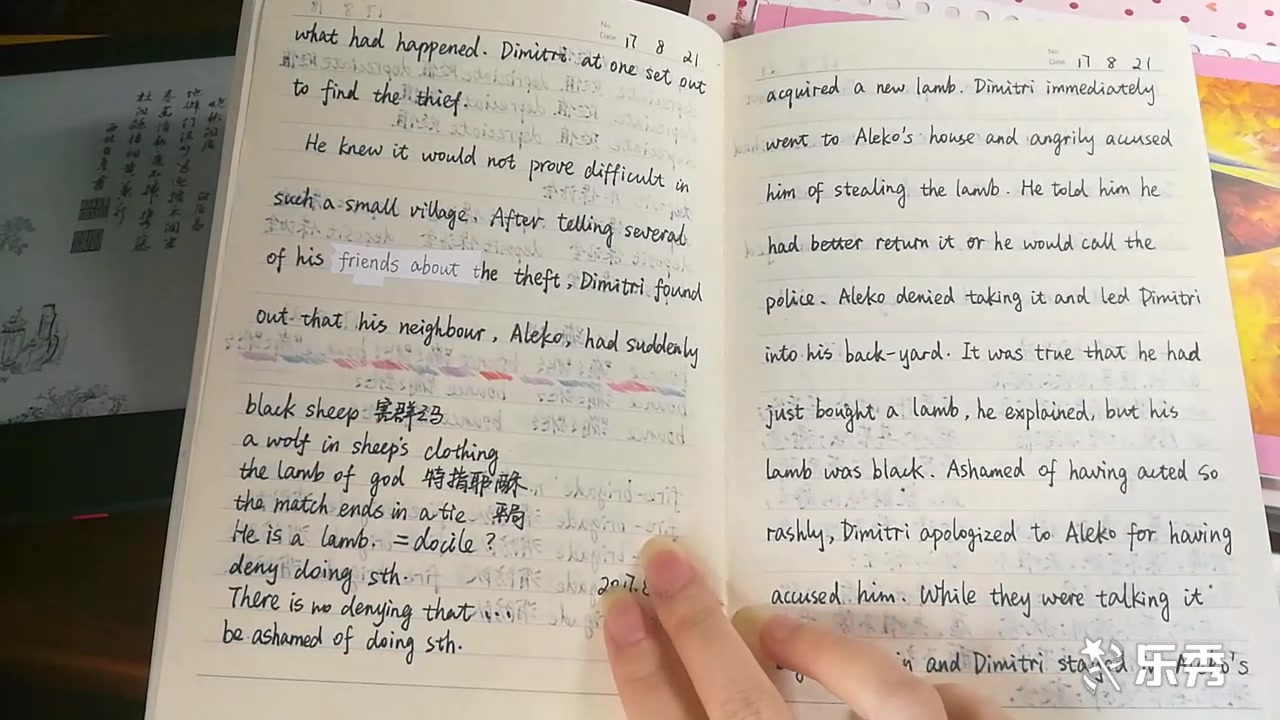 No.
Date 17 8 21
what had happened. Dimitri at one set out
to find the thief.
He knew it would not prove difficult in
such a small village. After telling several
of his friends about the theft, Dimitri found
out that his neighbour, Aleko, had suddenly
black sheep 害群之马
a wolf in sheep's clothing
the lamb of god 特指耶稣
the match ends in a tie 平局
He is a lamb. = docile ?
deny doing sth.
2017.8
There is no denying that ...
be ashamed of doing sth.
No.
Date 17 8 21
acquired a new lamb. Dimitri immediately
went to Aleko's house and angrily accused
him of stealing the lamb. He told him he
had better return it or he would call the
police. Aleko denied taking it and led Dimitri
into his back-yard. It was true that he had
just bought a lamb, he explained, but his
lamb was black. Ashamed of having acted so
rashly, Dimitri apologized to Aleko for having
accused him. While they were talking it
and Dimitri stayed Aleko's
乐秀